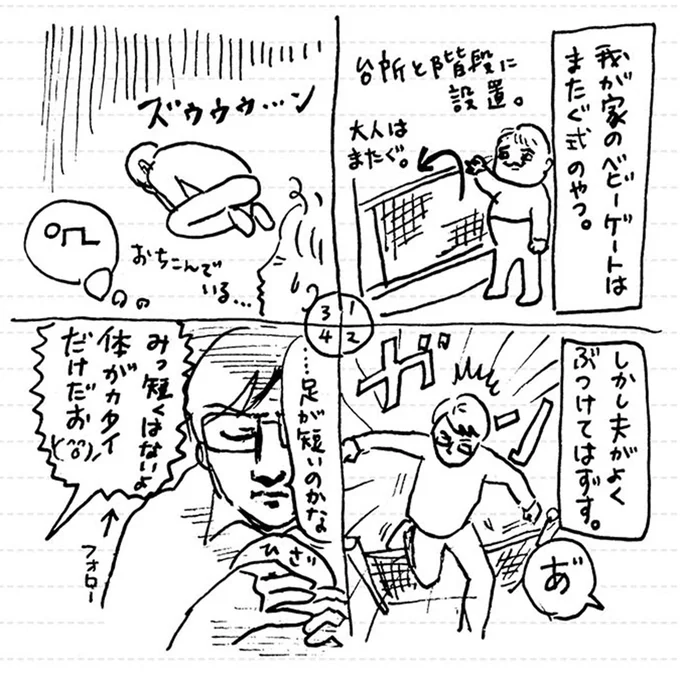 我が家のベビーゲートは
またぐ式のやつ。
台所と階段に
設置。
大人は
またぐ。
1
しかし夫がよく
ぶつけてはずす。
ガッ
あ゛
2
ズゥゥゥ…ン
おちこんで
いる…
3
……足が短いのかな
ひざ
みっ短くはないよ
体がカタイ
だけだお
(^o^)ノ
フォロー
4